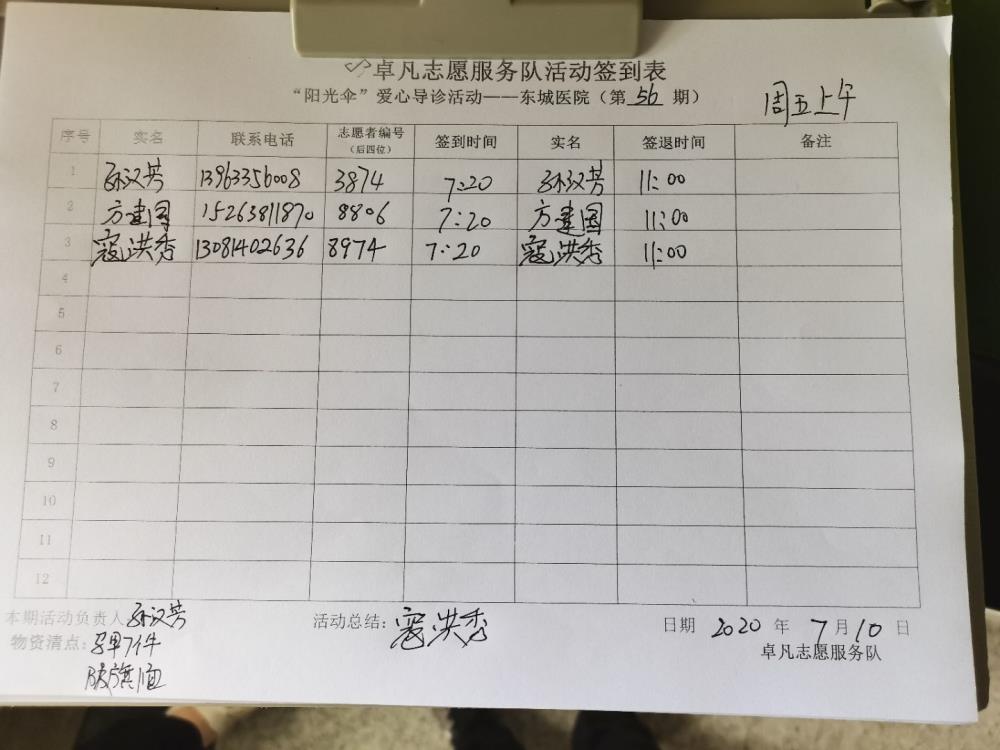 卓凡志愿服务队活动签到表
“阳光伞”爱心导诊活动——东城医院（第 56 期）
周五上午
序号 实名 联系电话 志愿者编号（后四位） 签到时间 实名 签退时间 备注
1 孙汉芳 13963356008 3874 7:20 孙汉芳 11:00
2 方建国 15263811870 8806 7:20 方建国 11:00
3 寇洪秀 13081402636 8974 7:20 寇洪秀 11:00
4
5
6
7
8
9
10
11
12
本期活动负责人 孙汉芳 活动总结：寇洪秀 日期 2020 年 7 月 10 日
物资清点：马甲7件 卓凡志愿服务队
队旗1面